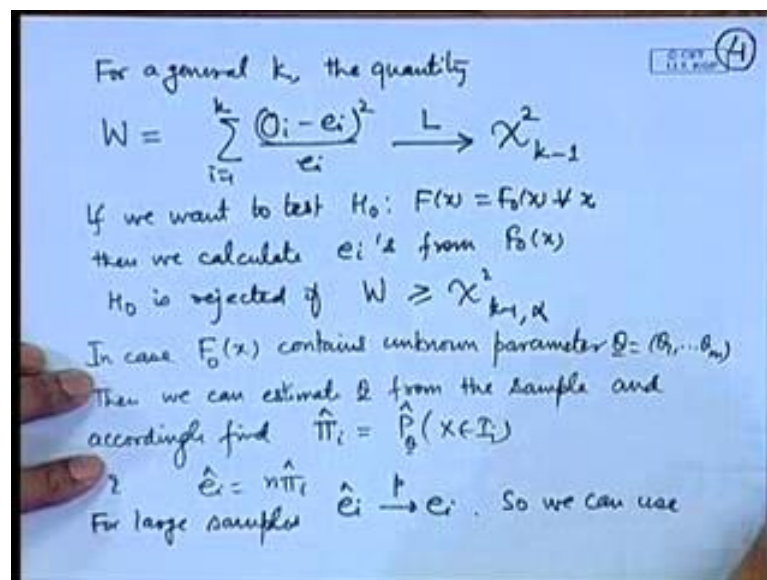 4
For a general k, the quantity
W = Σ_{i=1}^{k} (Oi - ei)² / ei →^L χ²_{k-1}
If we want to test H₀: F(x) = F₀(x) ∀ x
then we calculate ei's from F₀(x)
H₀ is rejected if W ≥ χ²_{k-1, α}
In case F₀(x) contains unknown parameter θ = (θ₁, ... θₘ)
Then we can estimate θ from the sample and
accordingly find π̂ᵢ = P̂_θ (X ∈ Iᵢ)
êᵢ = nπ̂ᵢ
For large samples êᵢ →^p eᵢ. So we can use